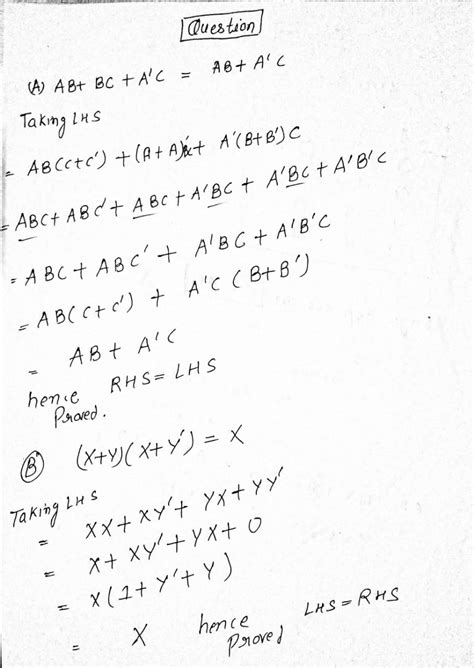 Question
(A) AB+ BC + A'C = AB + A'C
Taking LHS
= AB(C+C') + (A+A)'x+ A'(B+B')C
= ABC+ABC'+ABC+A'BC+A'BC+A'B'C
= ABC+ABC' + A'BC+A'B'C
= AB(C+C') + A'C (B+B')
= AB+ A'C
hence RHS= LHS
Proved.
(B) (X+Y)(X+Y') = X
Taking LHS
= XX+XY'+YX+YY'
= X+XY'+YX+0
= X(1+Y'+Y)
= X hence Proved LHS=RHS